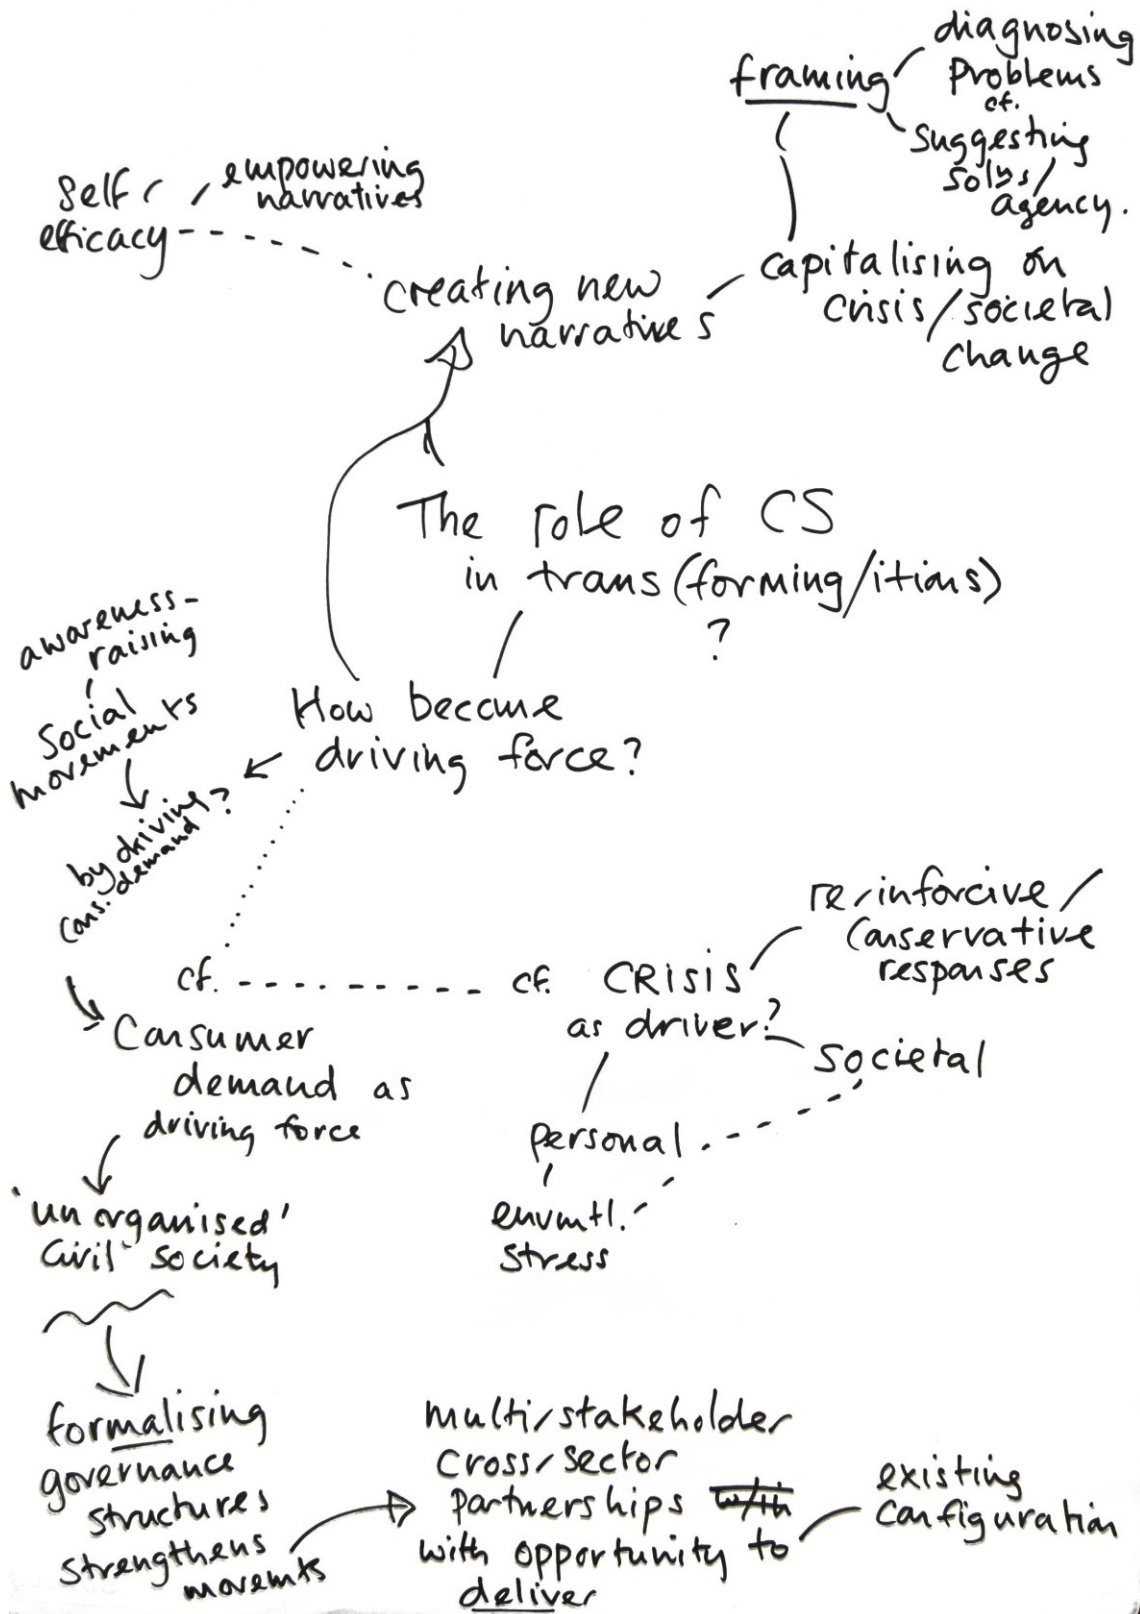 framing
diagnosing
problems
cf.
suggesting
solns/
agency.
self
efficacy
empowering
narratives
creating new
narratives
capitalising on
crisis/societal
change
The role of CS
in trans(forming/itions)
?
How become
driving force?
awareness-
raising
social
movements
by driving
cons. demand?
cf.
cf. CRISIS
as driver?
re-inforcive/
conservative
responses
societal
personal
envmtl.
stress
Consumer
demand as
driving force
'unorganised'
civil society
formalising
governance
structures
strengthens
movemts
multi-stakeholder
cross-sector
partnerships w/in
with opportunity to
deliver
existing
configuration